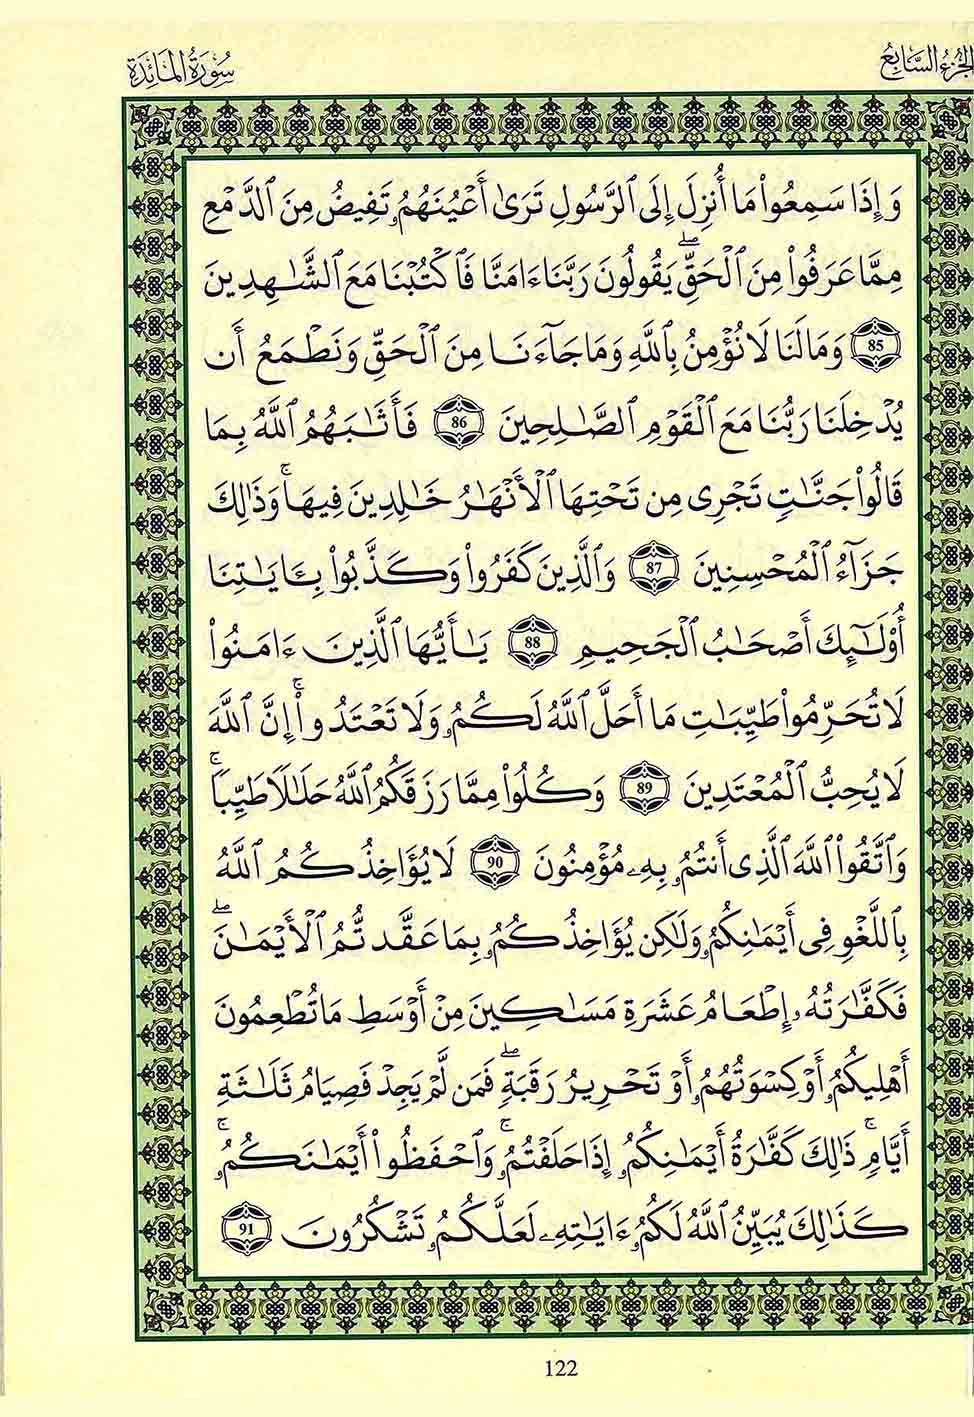 الجزء السابع
سورة المائدة
وَإِذَا سَمِعُواْ مَا أُنزِلَ إِلَى ٱلرَّسُولِ تَرَىٰ أَعْيُنَهُمُۥ تَفِيضُ مِنَ ٱلدَّمْعِ
مِمَّا عَرَفُواْ مِنَ ٱلْحَقِّۖ يَقُولُونَ رَبَّنَا ءَامَنَّا فَٱكْتُبْنَا مَعَ ٱلشَّٰهِدِينَ
85 وَمَا لَنَا لَا نُؤْمِنُ بِٱللَّهِ وَمَا جَآءَنَا مِنَ ٱلْحَقِّ وَنَطْمَعُ أَن
يُدْخِلَنَا رَبُّنَا مَعَ ٱلْقَوْمِ ٱلصَّٰلِحِينَ 86 فَأَثَٰبَهُمُ ٱللَّهُ بِمَا
قَالُواْ جَنَّٰتٍ تَجْرِى مِن تَحْتِهَا ٱلْأَنْهَٰرُ خَٰلِدِينَ فِيهَاۚ وَذَٰلِكَ
جَزَآءُ ٱلْمُحْسِنِينَ 87 وَٱلَّذِينَ كَفَرُواْ وَكَذَّبُواْ بِـَٔايَٰتِنَا
أُوْلَٰٓئِكَ أَصْحَٰبُ ٱلْجَحِيمِ 88 يَٰأَيُّهَا ٱلَّذِينَ ءَامَنُواْ
لَا تُحَرِّمُواْ طَيِّبَٰتِ مَا أَحَلَّ ٱللَّهُ لَكُمُۥ وَلَا تَعْتَدُواْۚ إِنَّ ٱللَّهَ
لَا يُحِبُّ ٱلْمُعْتَدِينَ 89 وَكُلُواْ مِمَّا رَزَقَكُمُ ٱللَّهُ حَلَٰلًا طَيِّبًاۚ
وَٱتَّقُواْ ٱللَّهَ ٱلَّذِى أَنتُمُۥ بِهِۦ مُؤْمِنُونَ 90 لَا يُؤَاخِذُكُمُ ٱللَّهُ
بِٱللَّغْوِ فِى أَيْمَٰنِكُمُۥ وَلَٰكِن يُؤَاخِذُكُمُۥ بِمَا عَقَّدتُّمُ ٱلْأَيْمَٰنَۖ
فَكَفَّٰرَتُهُۥ إِطْعَامُ عَشَرَةِ مَسَٰكِينَ مِنْ أَوْسَطِ مَا تُطْعِمُونَ
أَهْلِيكُمُۥ أَوْ كِسْوَتُهُمُۥ أَوْ تَحْرِيرُ رَقَبَةٍۖ فَمَن لَّمْ يَجِدْ فَصِيَامُ ثَلَٰثَةِ
أَيَّامٍۚ ذَٰلِكَ كَفَّٰرَةُ أَيْمَٰنِكُمُۥ إِذَا حَلَفْتُمُۥۚ وَٱحْفَظُواْ أَيْمَٰنَكُمُۥۚ
كَذَٰلِكَ يُبَيِّنُ ٱللَّهُ لَكُمُۥ ءَايَٰتِهِۦ لَعَلَّكُمُۥ تَشْكُرُونَ 91
122